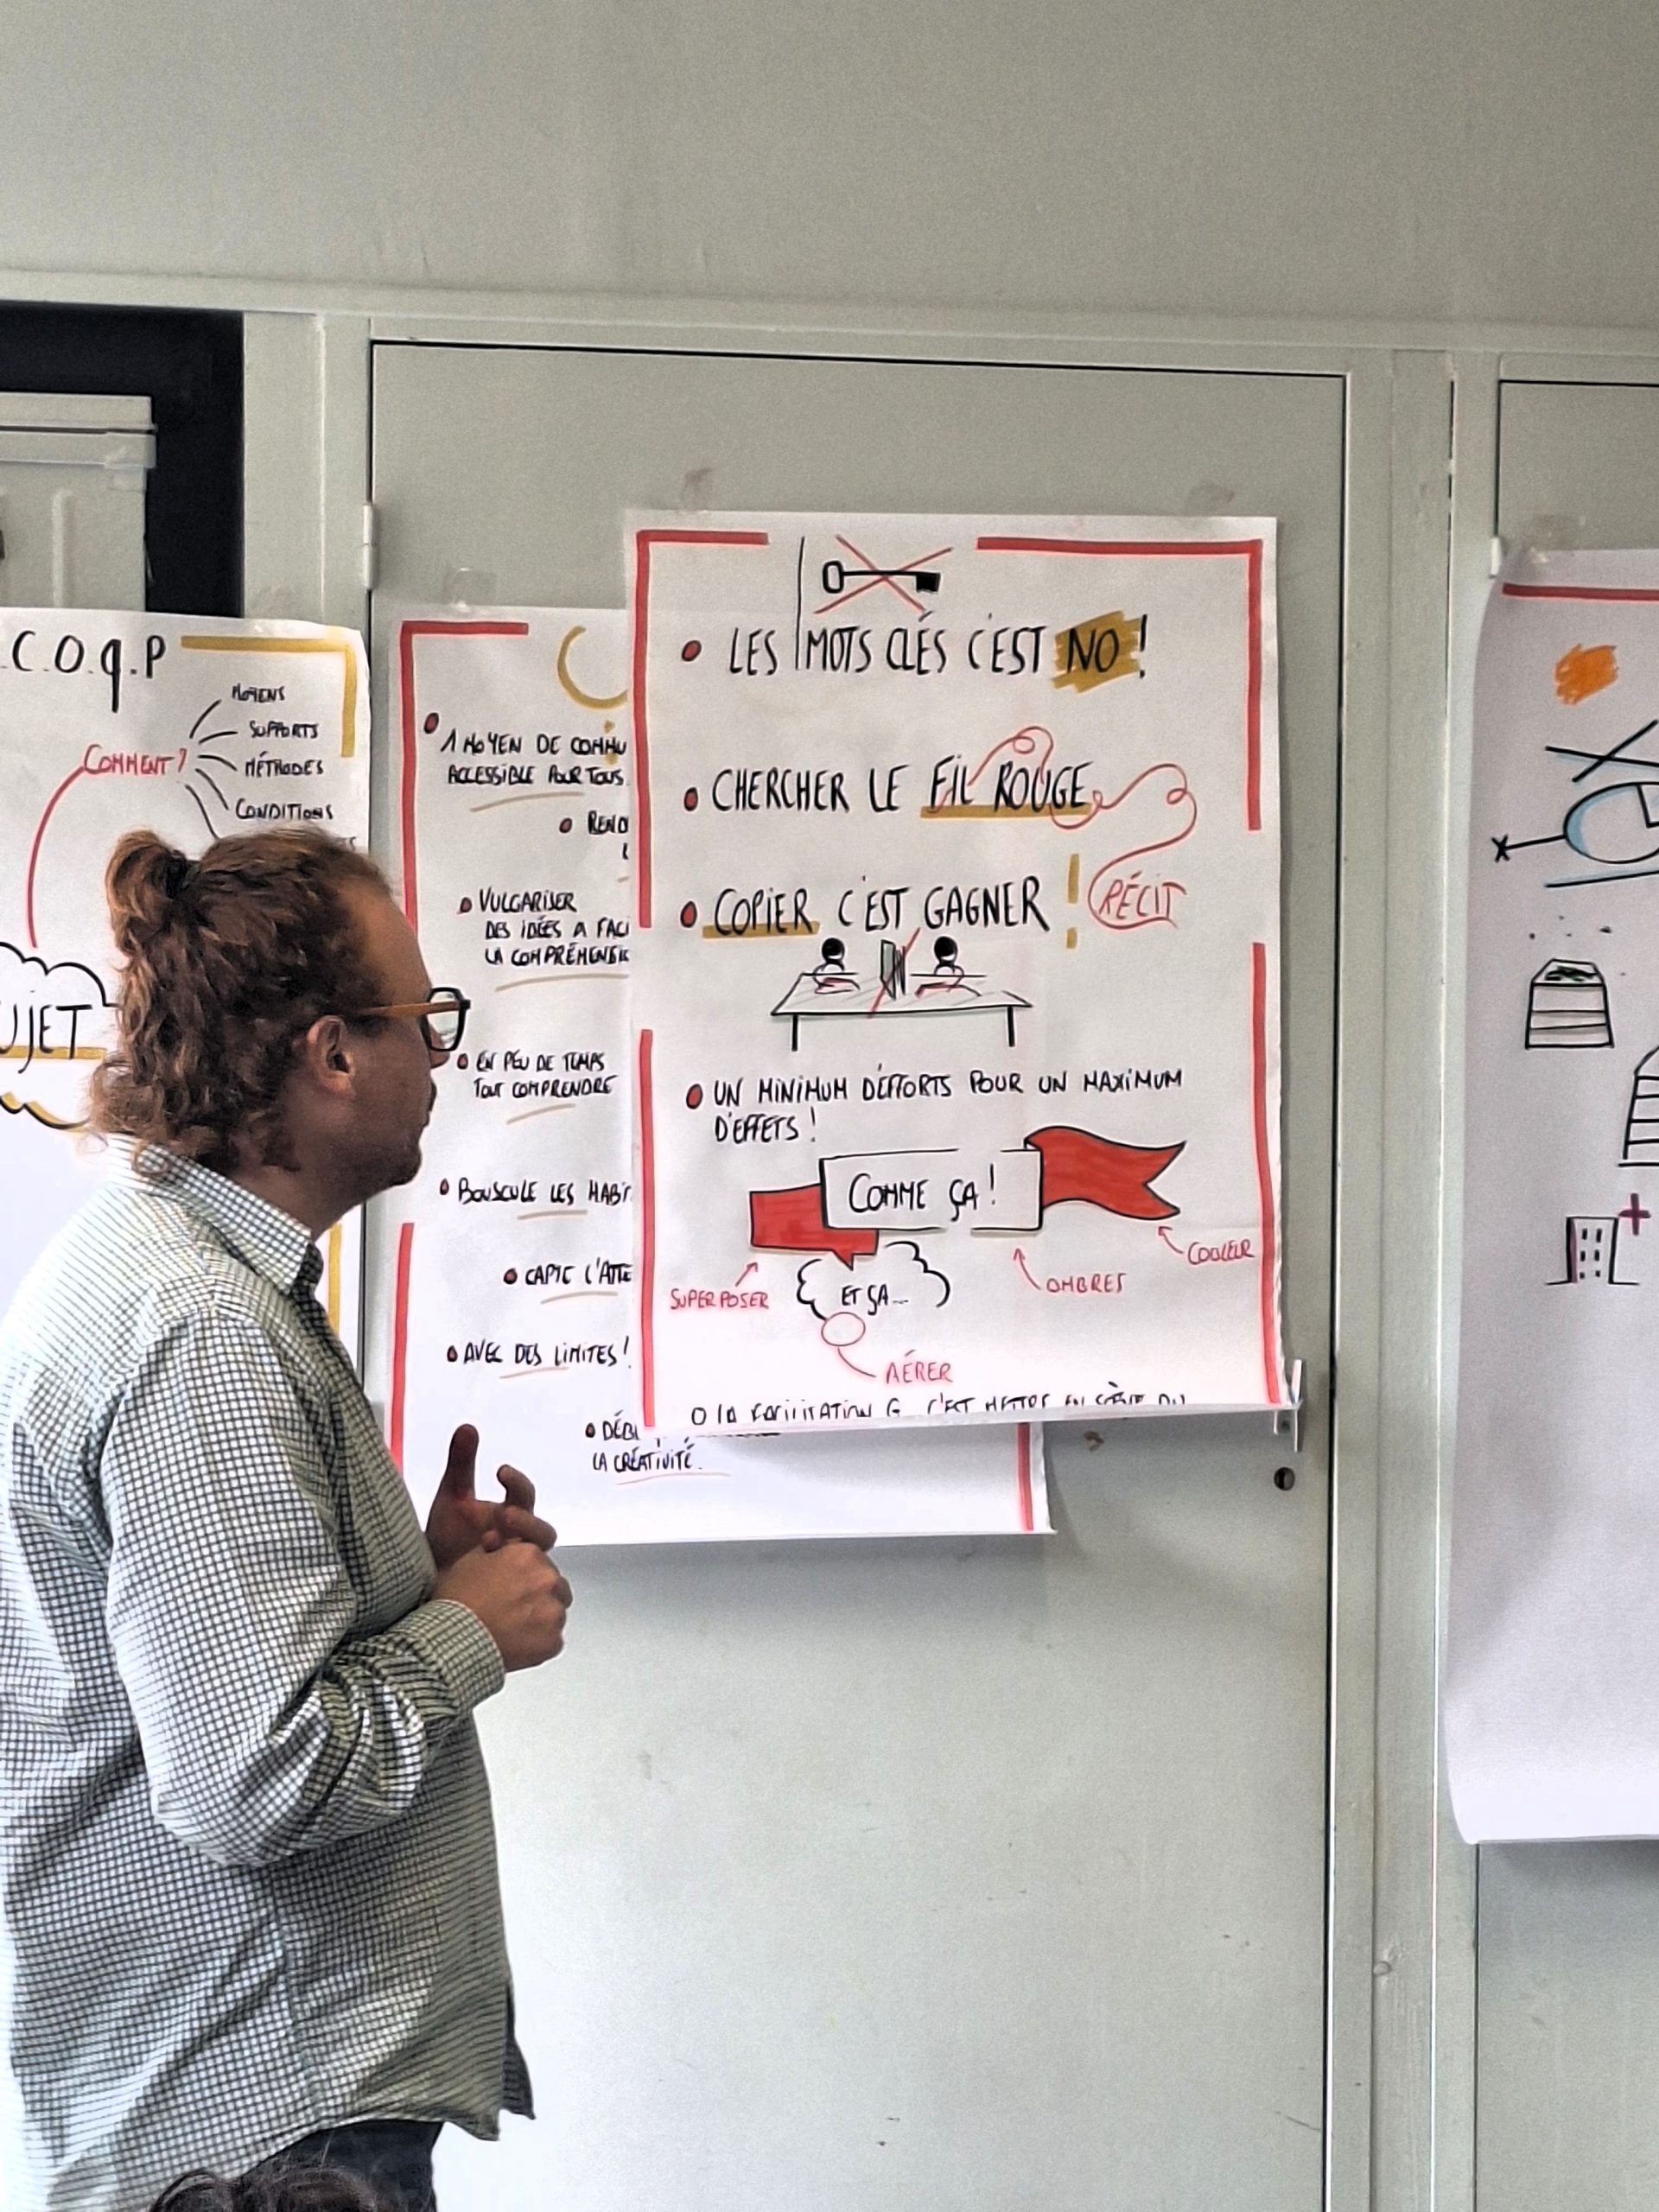 C.O.Q.P
MOYENS
SUPPORTS
COMMENT?
MÉTHODES
CONDITIONS
UJET
1 MOYEN DE COMMU
ACCESSIBLE POUR TOUS
REND
VULGARISER
DES IDÉES A FACI
LA COMPRÉHENSIO
EN PEU DE TEMPS
TOUT COMPRENDRE
BOUSCULE LES HABIT
CAPTE L'ATTE
AVEC DES LIMITES!
DÉBL
LA CRÉATIVITÉ.
LES MOTS CLÉS C'EST NO!
CHERCHER LE FIL ROUGE
COPIER C'EST GAGNER !
RÉCIT
UN MINIMUM D'EFFORTS POUR UN MAXIMUM
D'EFFETS !
COMME ÇA!
COULEUR
SUPERPOSER
ET ÇA...
OMBRES
AÉRER
LA FACILITATION G C'EST METTRE EN SCÈNE DU